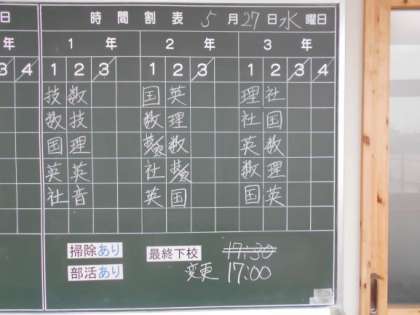 日 時間割表 5月27日水曜日
年 1年 2年 3年
3 4 1 2 3 1 2 3 1 2 3
技 数 国 英 理 社
数 技 数 理 社 国
国 理 数 英 数
英 英 社 数 理
社 音 英 国 国 英
掃除あり 最終下校 17:30
部活あり 変更 17:00